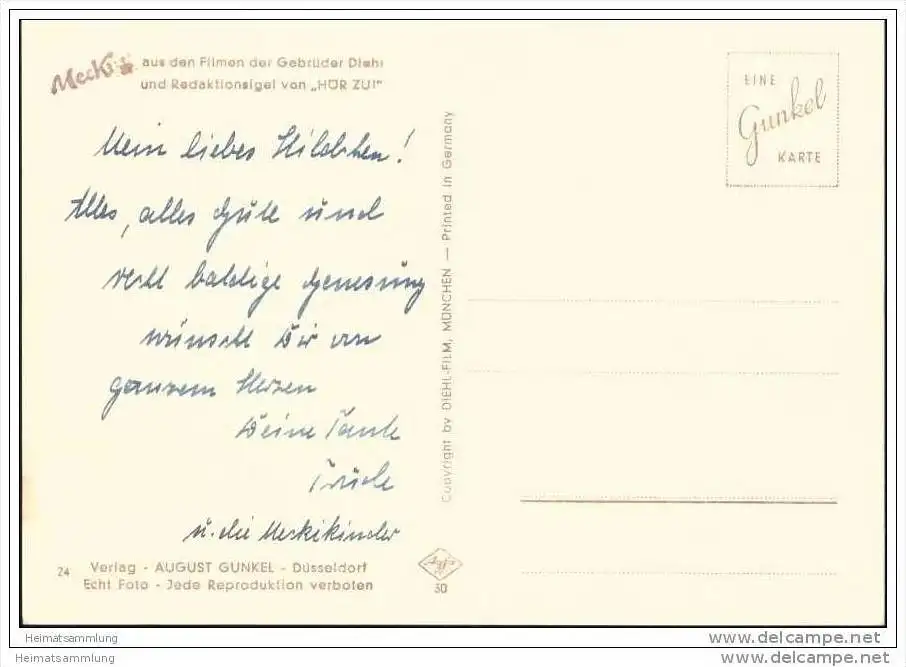 Mecki aus den Filmen der Gebrüder Diehl
und Redaktionsigel von „HÖR ZU!"
EINE
Gunkel
KARTE
Mein liebes Hildchen!
Alles, alles Gute und
recht baldige Genesung
wünscht Dir von
ganzem Herzen
Deine Tante
Trude
u. die Meckikinder
Copyright by DIEHL-FILM, MÜNCHEN — Printed in Germany
24 Verlag - AUGUST GUNKEL - Düsseldorf
Echt Foto - Jede Reproduktion verboten
Agfa
30
Heimatsammlung
Heimatsammlung
www.delcampe.net
www.delcampe.net